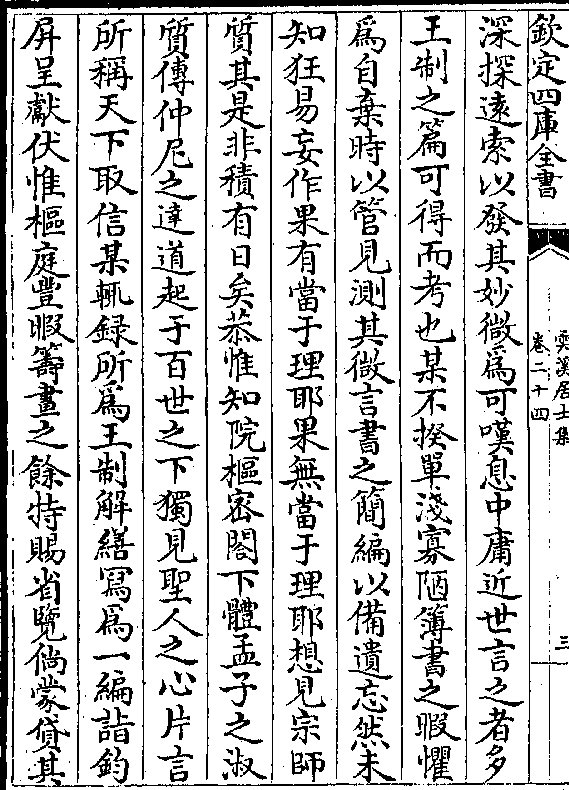 欽定四庫全書
雲溪居士集
卷二十四
三
深探遠索以發其妙微為可嘆息中庸近世言之者多
王制之篇可得而考也某不揆單淺寡陋簿書之暇懼
為自棄時以管見測其微言書之簡編以備遺忘然未
知狂易妄作果有當于理耶果無當于理耶想見宗師
質其是非積有日矣恭惟知院樞密閣下體孟子之淑
質傳仲尼之達道起于百世之下獨見聖人之心片言
所稱天下取信某輒録所為王制解繕寫為一編詣鈞
屏呈獻伏惟樞庭豐暇籌畫之餘持賜省覽倘蒙貸其